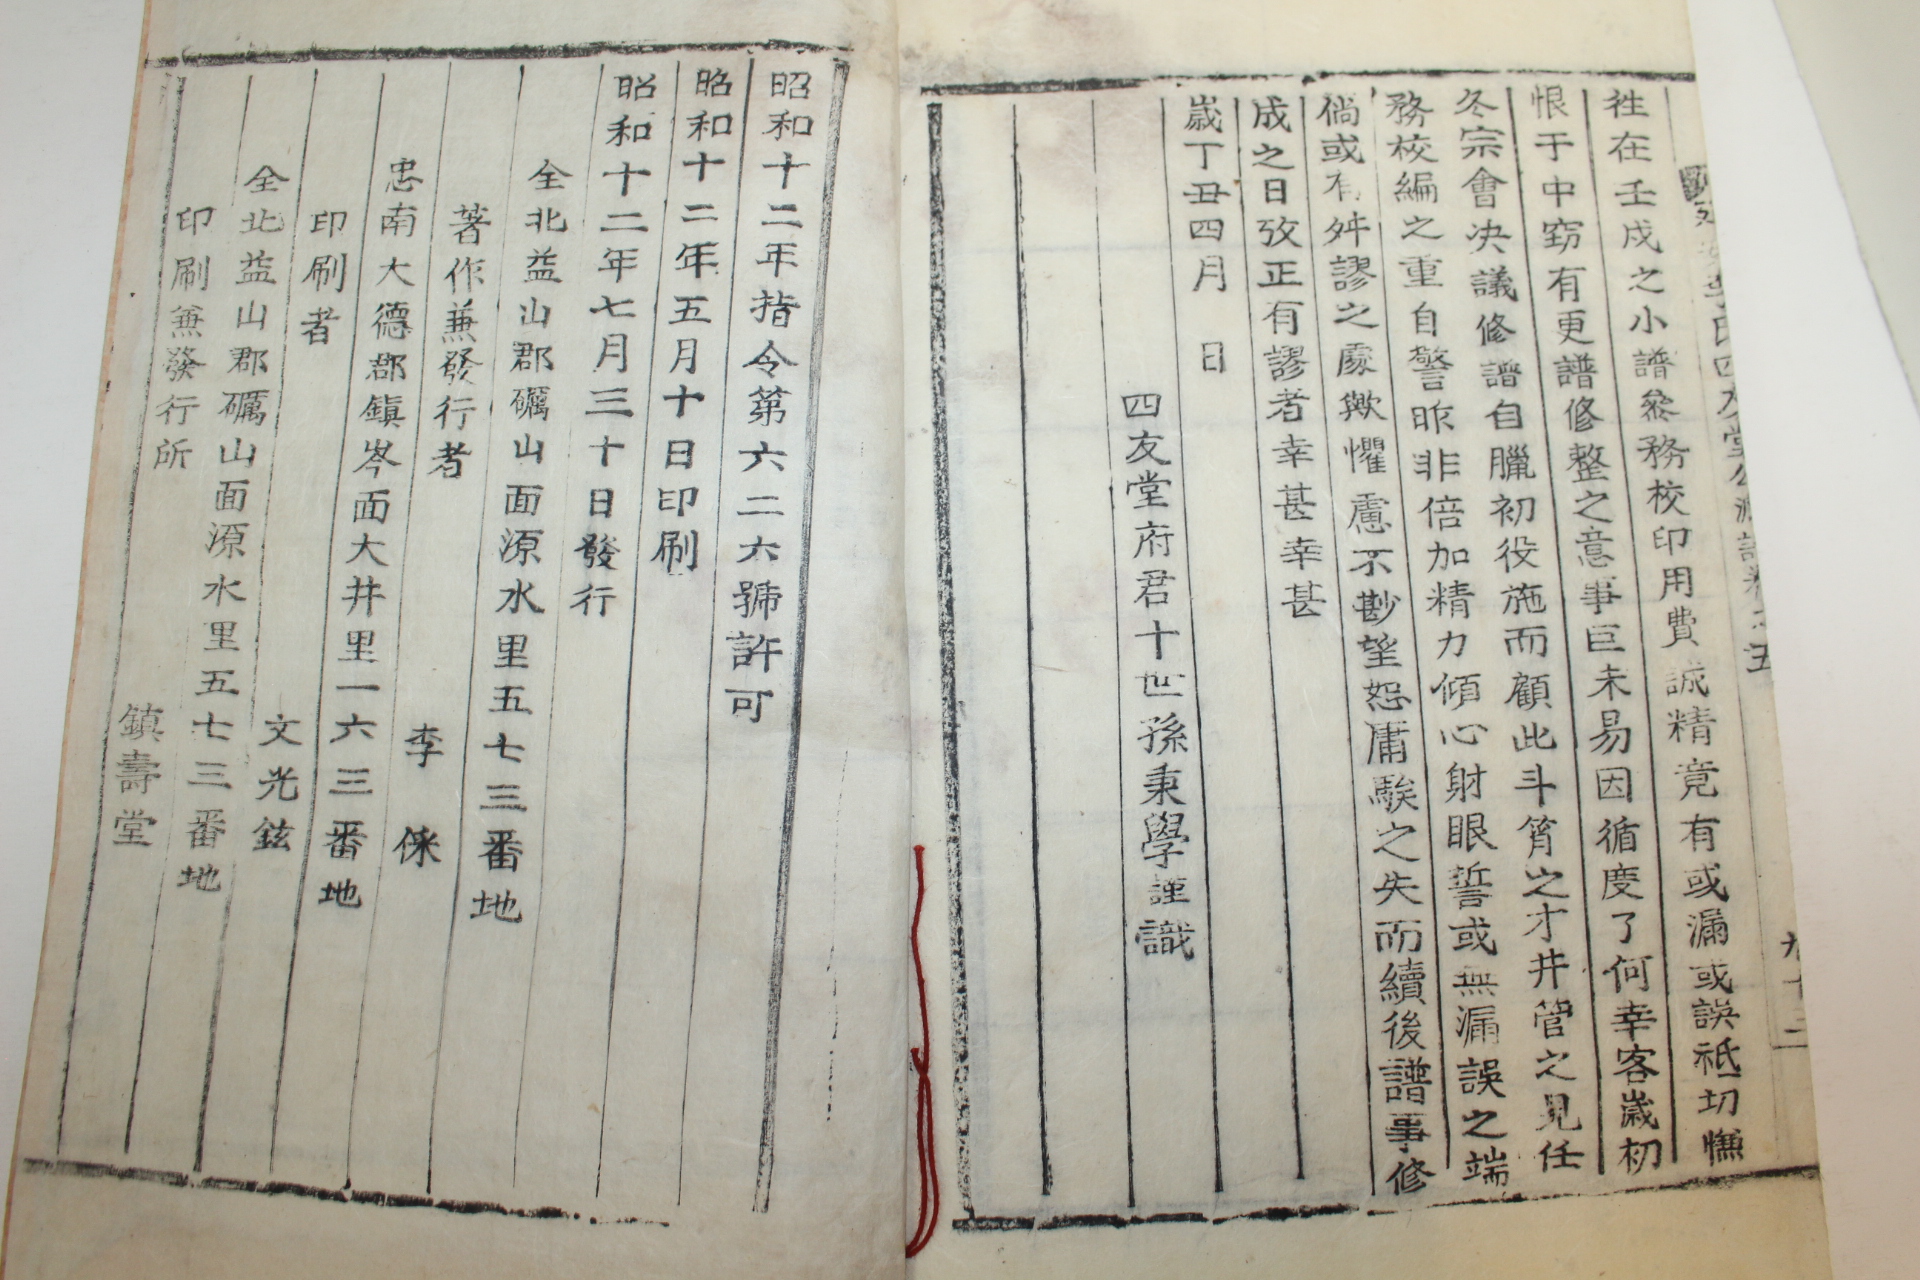 李氏四友堂公派譜卷之五
九十三
徃在壬戌之小譜叅務校印用費誠精竟有或漏或誤祗切憮
恨于中窃有更譜修整之意事巨未易因循度了何幸客歲初
冬宗會决議修譜自臘初役施而顧此斗筲之才井管之見任
務校編之重自警昨非倍加精力傾心財眼誓或無漏誤之端
倘或有舛謬之處歟懼慮不尠望恕庸騃之失而續後譜事修
成之日攷正有謬者幸甚幸甚
歲丁丑四月　日
四友堂府君十世孫秉學謹識
昭和十二年指令第六二六號許可
昭和十二年五月十日印刷
昭和十二年七月三十日發行
全北益山郡礪山面源水里五七三番地
著作兼發行者　李倸
忠南大德郡鎭岑面大井里一六三番地
印刷者　文光鉉
全北益山郡礪山面源水里五七三番地
印刷兼發行所　鎭壽堂